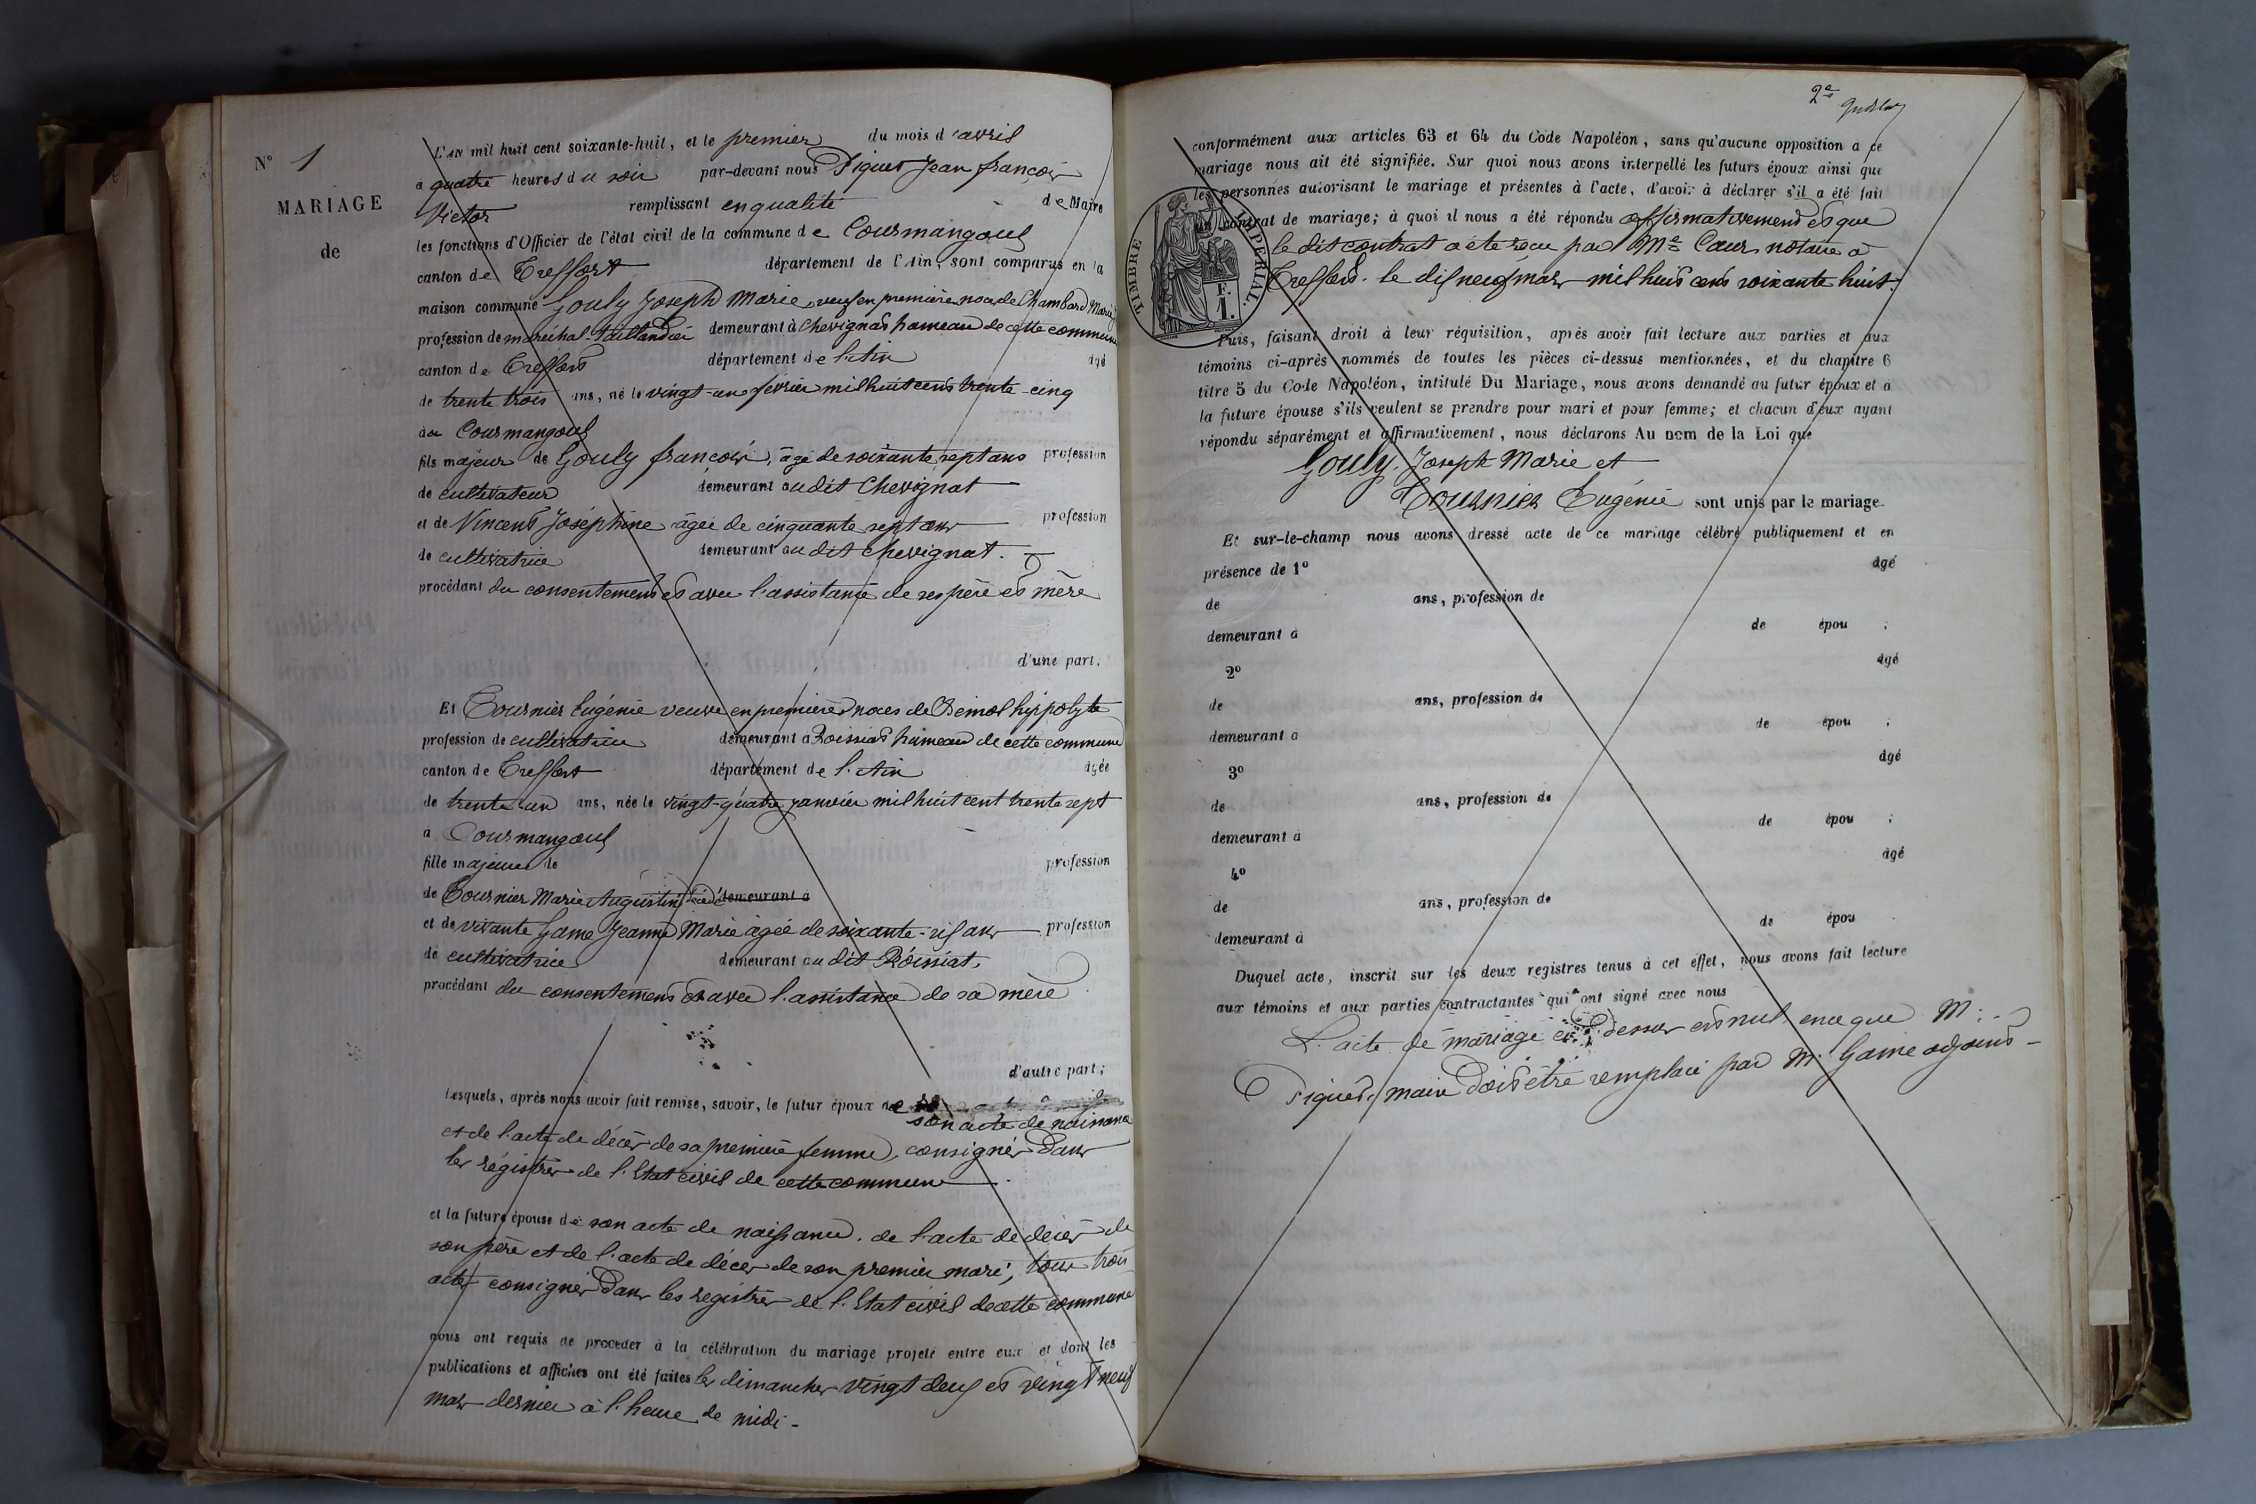 N° 1
MARIAGE
de
L'an mil huit cent soixante-huit, et le premier du mois d'avril
à quatre heures du soir par-devant nous Piquet Jean françois
Victor remplissant en qualité de Maire
les fonctions d'Officier de l'état civil de la commune de Courmangoux
canton de Treffort département de l'Ain, sont comparus en la
maison commune Gouly Joseph Marie, veuf en première noces de Chambard Marie
profession de maréchal-taillandier demeurant à Chevignat hameau de cette commune
canton de Treffort département de l'Ain âgé
de trente trois ans, né le vingt-un février mil huit cent trente-cinq
à Courmangoux
fils majeur de Gouly françois, âgé de soixante sept ans profession
de cultivateur demeurant audit Chevignat
et de Vincent Joséphine âgée de cinquante sept ans profession
de cultivatrice demeurant audit Chevignat.
procédant du consentement et avec l'assistance de ses père et mère
d'une part.
Et Tournier Eugénie veuve en premières noces de Bemol hippolyte
profession de cultivatrice demeurant à Roissiat hameau de cette commune
canton de Treffort département de l'Ain âgée
de trente un ans, née le vingt-quatre janvier mil huit cent trente sept
à Courmangoux
fille majeure de profession
de Tournier Marie Augustin décédé demeurant à
et de vivante Game Jeanne Marie âgée de soixante-six ans profession
de cultivatrice demeurant audit Roissiat,
procédant du consentement et avec l'assistance de sa mère
d'autre part;
Lesquels, après nous avoir fait remise, savoir, le futur époux de
son acte de naissance
et de l'acte de décès de sa première femme, consignés dans
les régistres de l'Etat civil de cette commune
et la future épouse de son acte de naissance, de l'acte de décès de
son père et de l'acte de décès de son premier mari, tous trois
actes consignés dans les registres de l'Etat civil de cette commune
nous ont requis de procéder à la célébration du mariage projeté entre eux et dont les
publications et affiches ont été faites les dimanches vingt deux et vingt neuf
mars dernier à l'heure de midi-
2e
conformément aux articles 63 et 64 du Code Napoléon, sans qu'aucune opposition à ce
mariage nous ait été signifiée. Sur quoi nous avons interpellé les futurs époux ainsi que
les personnes autorisant le mariage et présentes à l'acte, d'avoir à déclarer s'il a été fait
un contrat de mariage; à quoi il nous a été répondu affirmativement et que
le dit contrat a été reçu par Me Cœur notaire à
Treffort le dix neuf mars mil huit cent soixante huit.
TIMBRE IMPÉRIAL.
F.
1.
Puis, faisant droit à leur réquisition, après avoir fait lecture aux parties et aux
témoins ci-après nommés de toutes les pièces ci-dessus mentionnées, et du chapitre 6
titre 5 du Code Napoléon, intitulé Du Mariage, nous avons demandé au futur époux et à
la future épouse s'ils veulent se prendre pour mari et pour femme; et chacun d'eux ayant
répondu séparément et affirmativement, nous déclarons Au nom de la Loi que
Gouly Joseph Marie et
Tournier Eugénie sont unis par le mariage.
Et sur-le-champ nous avons dressé acte de ce mariage célébré publiquement et en
présence de 1° âgé
de ans, profession de
demeurant à de épou ;
2° âgé
de ans, profession de
demeurant à de épou ;
3° âgé
de ans, profession de
demeurant à de épou ;
4° âgé
de ans, profession de
demeurant à de épou
Duquel acte, inscrit sur les deux registres tenus à cet effet, nous avons fait lecture
aux témoins et aux parties contractantes qui ont signé avec nous
L'acte de mariage ci-dessus est nul en ce que M.
Piquet, maire doit être remplacé par M. Game adjoint-